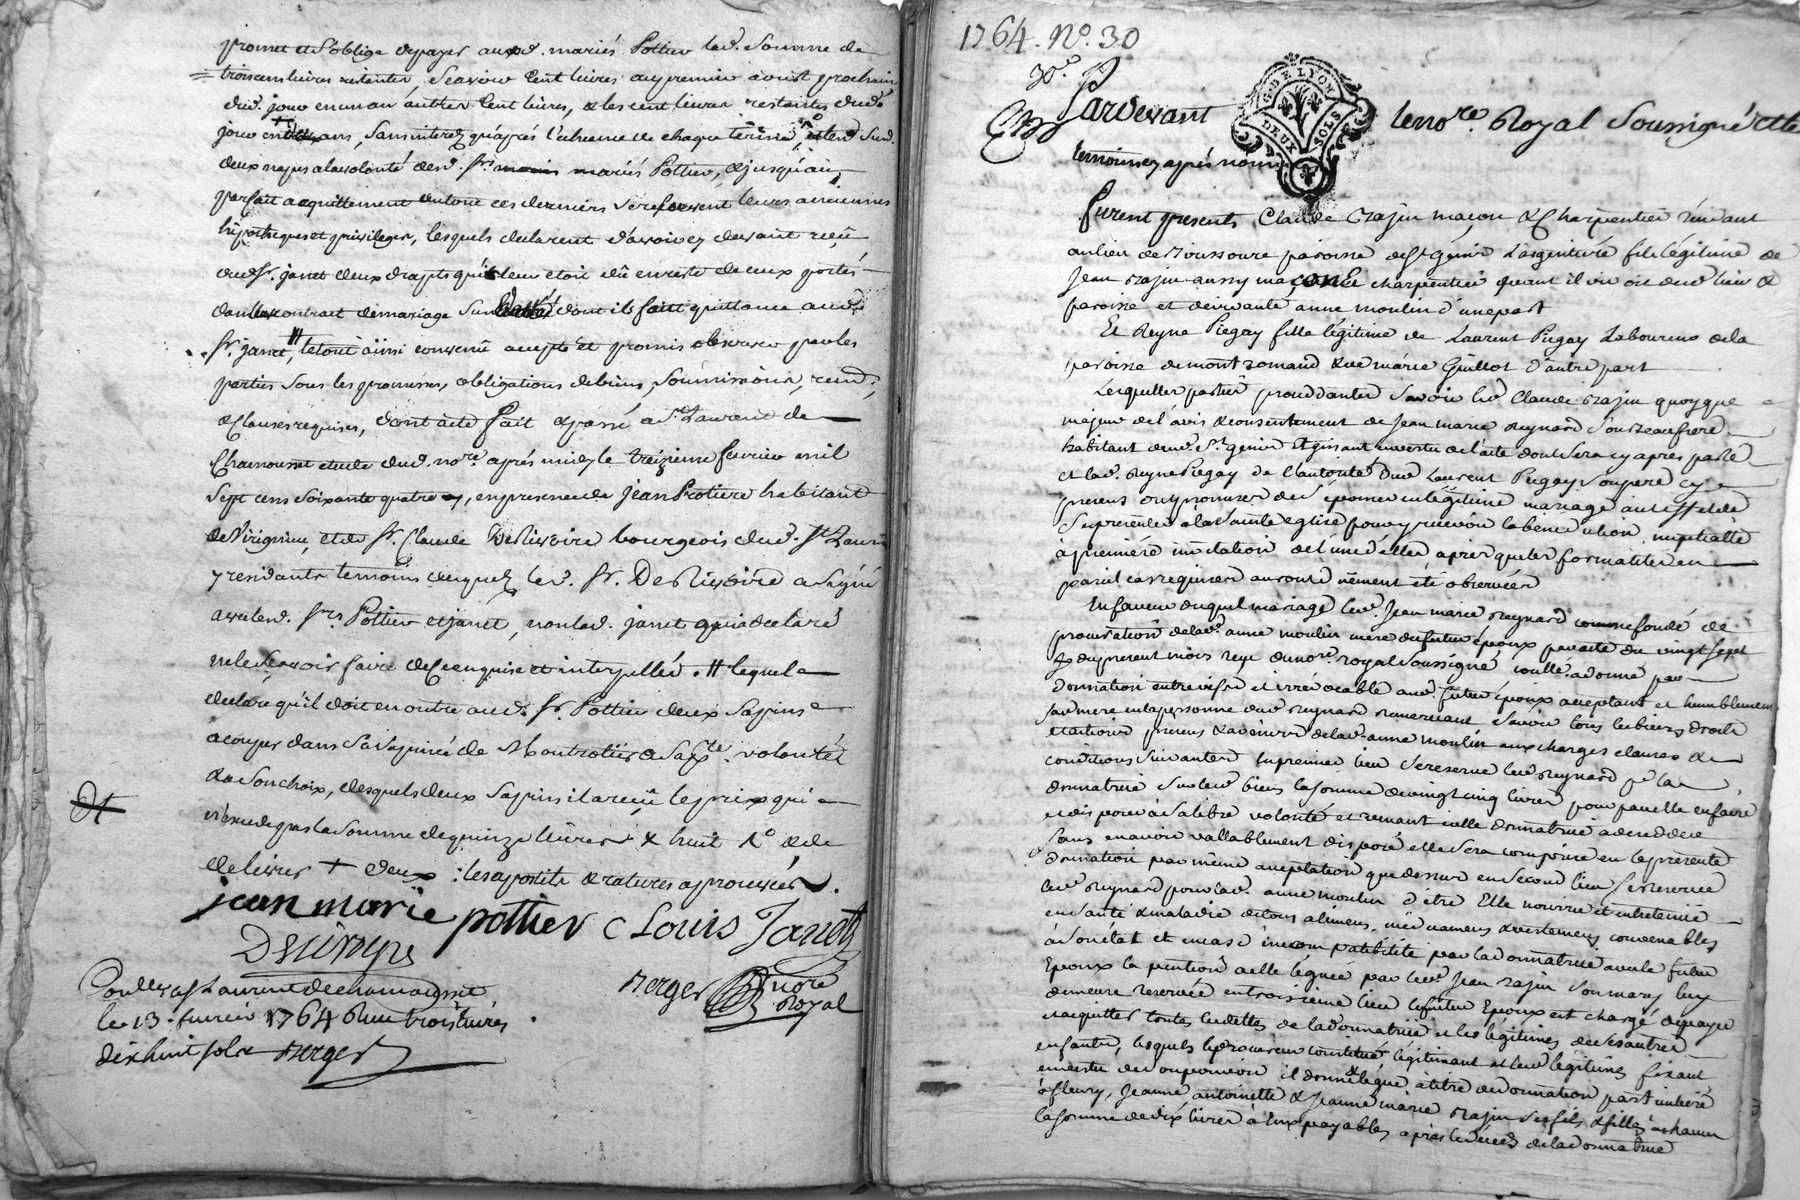 promet et s'oblige de payer auxd. mariés Pottier lad. somme de
trois cens livres restantes, scavoir cent livres au premier aoust prochain
dud. jour en un an autres cent livres, & les cent livres restantes dud.
jour en ans, sans interez qu'après l'echeance de chaque terme,
deux à la volonté desd. srs mariés Pottier, & jusqu'au
parfait acquittement du tout ces derniers se reservent leurs anciennes
hipotheques et privileges, lesquels declarent d'avoir cy devant reçu
dud. sr. janet deux draps qu'il leur etoit dû en reste de ceux portés
dans leur contrat de mariage dont ils font quittance aud.
sr. janet, # le tout ainsi convenu accepté et promis observer par les
parties sous les promesses, obligations de biens, soumissions, renon.
& clauses requises, dont acte fait & passé a St. Laurent de
Chamousset etude dud. nore. après midy le treizieme fevrier mil
sept cens soixante quatre, en presence de jean Protiere habitant
de Virigneu, et de sr. Claude Derivoire bourgeois dud. St. Laurent
y residants temoins desquels led. sr. Derivoire a signé
avec lesd. srs Pottier et janet, non lad. janet qui a declaré
ne le scavoir faire de ce enquise et interpellée. # lequel a
declaré qu'il doit en outre aud. sr. Pottier deux sapins
a couper dans sa sapinée de Montrotier a sa volonté
& a son choix, desquels deux sapins il a reçu le prix qui
n'excede pas la somme de quinze livres & huit
de livres + deux : les apostils & ratures aprouvées.
jean marie pottier C Louis Janet
Derivoyre
Berger nore Royal
Con.lle a St Laurent de chamousset
le 13. fevrier 1764 Reçu trois livres
dix huit sols Berger
1764. No. 30
30.e
Pardevant le nore. Royal soussigné & les
temoins cy après nommés
G. DE LYON
DEUX SOLS
furent presents, Claude Bajin maçon & Charpentier residant
au lieu de paroisse de St genis L'argentiere fils légitime de
Jean Bajin aussy maçon & charpentier quant il vivoit dud. lieu &
paroisse et de vivante anne moulin d'une part
Et Reyne Piegay fille légitime de Laurent Piegay Laboureur de la
paroisse de montromand & de marie Guillot d'autre part
Lesquelles parties procedantes savoir led. Claude Bajin quoyque
majeur de l'avis & consentement de Jean marie Reynard son beaufrere
habitant dud. St. genis Et gissant en vertu de l'acte dont sera cy après parlé
et lad. Reyne Piegay de l'autorité dud. Laurent Piegay son pere cy
present ont promis de s'épouser en légitime mariage a cet effet de
se presenter à la sainte eglise pour y recevoir la benediction nuptialle
à première invitation de l'une d'elles après que les formalités en
pareil cas requises auront dûement été observées
En faveur duquel mariage led. Jean marie Reynard comme fondé de
procuration de lad. anne moulin mere du futur epoux par acte du vingt sept
du present mois reçu du nore. royal soussigné controllé, a donné par
donnation entre vifs et irrévocable aud. futur epoux acceptant et humblement
sa d. mere en la personne dud. Reynard remerciant savoir tous les biens droits
et actions presens & avenir de lad. anne moulin aux charges clauses &
conditions suivantes En premier lieu se reserve led. Reynard pr. la
donnatrice sur led. biens la somme de vingt cinq livres pour par elle en faire
et disposer à sa libre volonté et venant icelle donnatrice a deceder
sans en avoir vallablement disposé elle sera comprise en la presente
donnation par meme acceptation que dessus en second lieu se reserve
led. Reynard pour lad. anne moulin d'être Elle nourrie et entretenüe
en santé & maladie de tous alimens, médicamens & vestemens convenables
à son état et en cas d'incompatibilité par la donnatrice avec le futur
Epoux la pention a elle léguée par led. Jean Bajin son mary luy
demeure reservée en troisieme lieu le futur Epoux est chargé de payer
et acquitter toutes les dettes de la donnatrice et les légitimes de ses autres
enfants, lesquels le procureur constitué légitimant et leurs légitimes fixant
en vertu de son pouvoir il donne & lègue à titre de donnation particuliere
à fleury, Jeanne, antoinette & Jeanne marie Bajin ses fils & filles à chacun
la somme de dix livres à Eux payables après le décès de la donnatrice